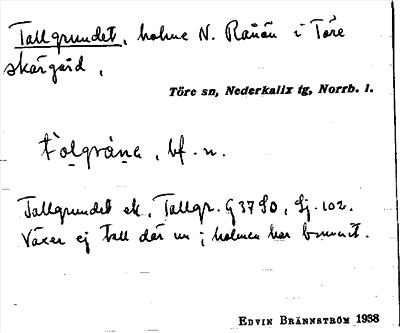 Tallgrundet, holme N. Ranön i Töre
skärgård,
Töre sn, Nederkalix tg, Norrb. l.
bf. n.
Tallgrundet ek, Tallgr. G37SO, Sj. 102.
Växer ej tall där nu; holmen har brunnit.
EDVIN BRÄNNSTRÖM 1938